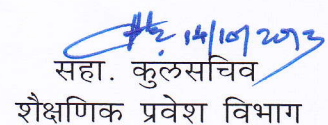 14/10/2013
सहा. कुलसचिव
शैक्षणिक प्रवेश विभाग